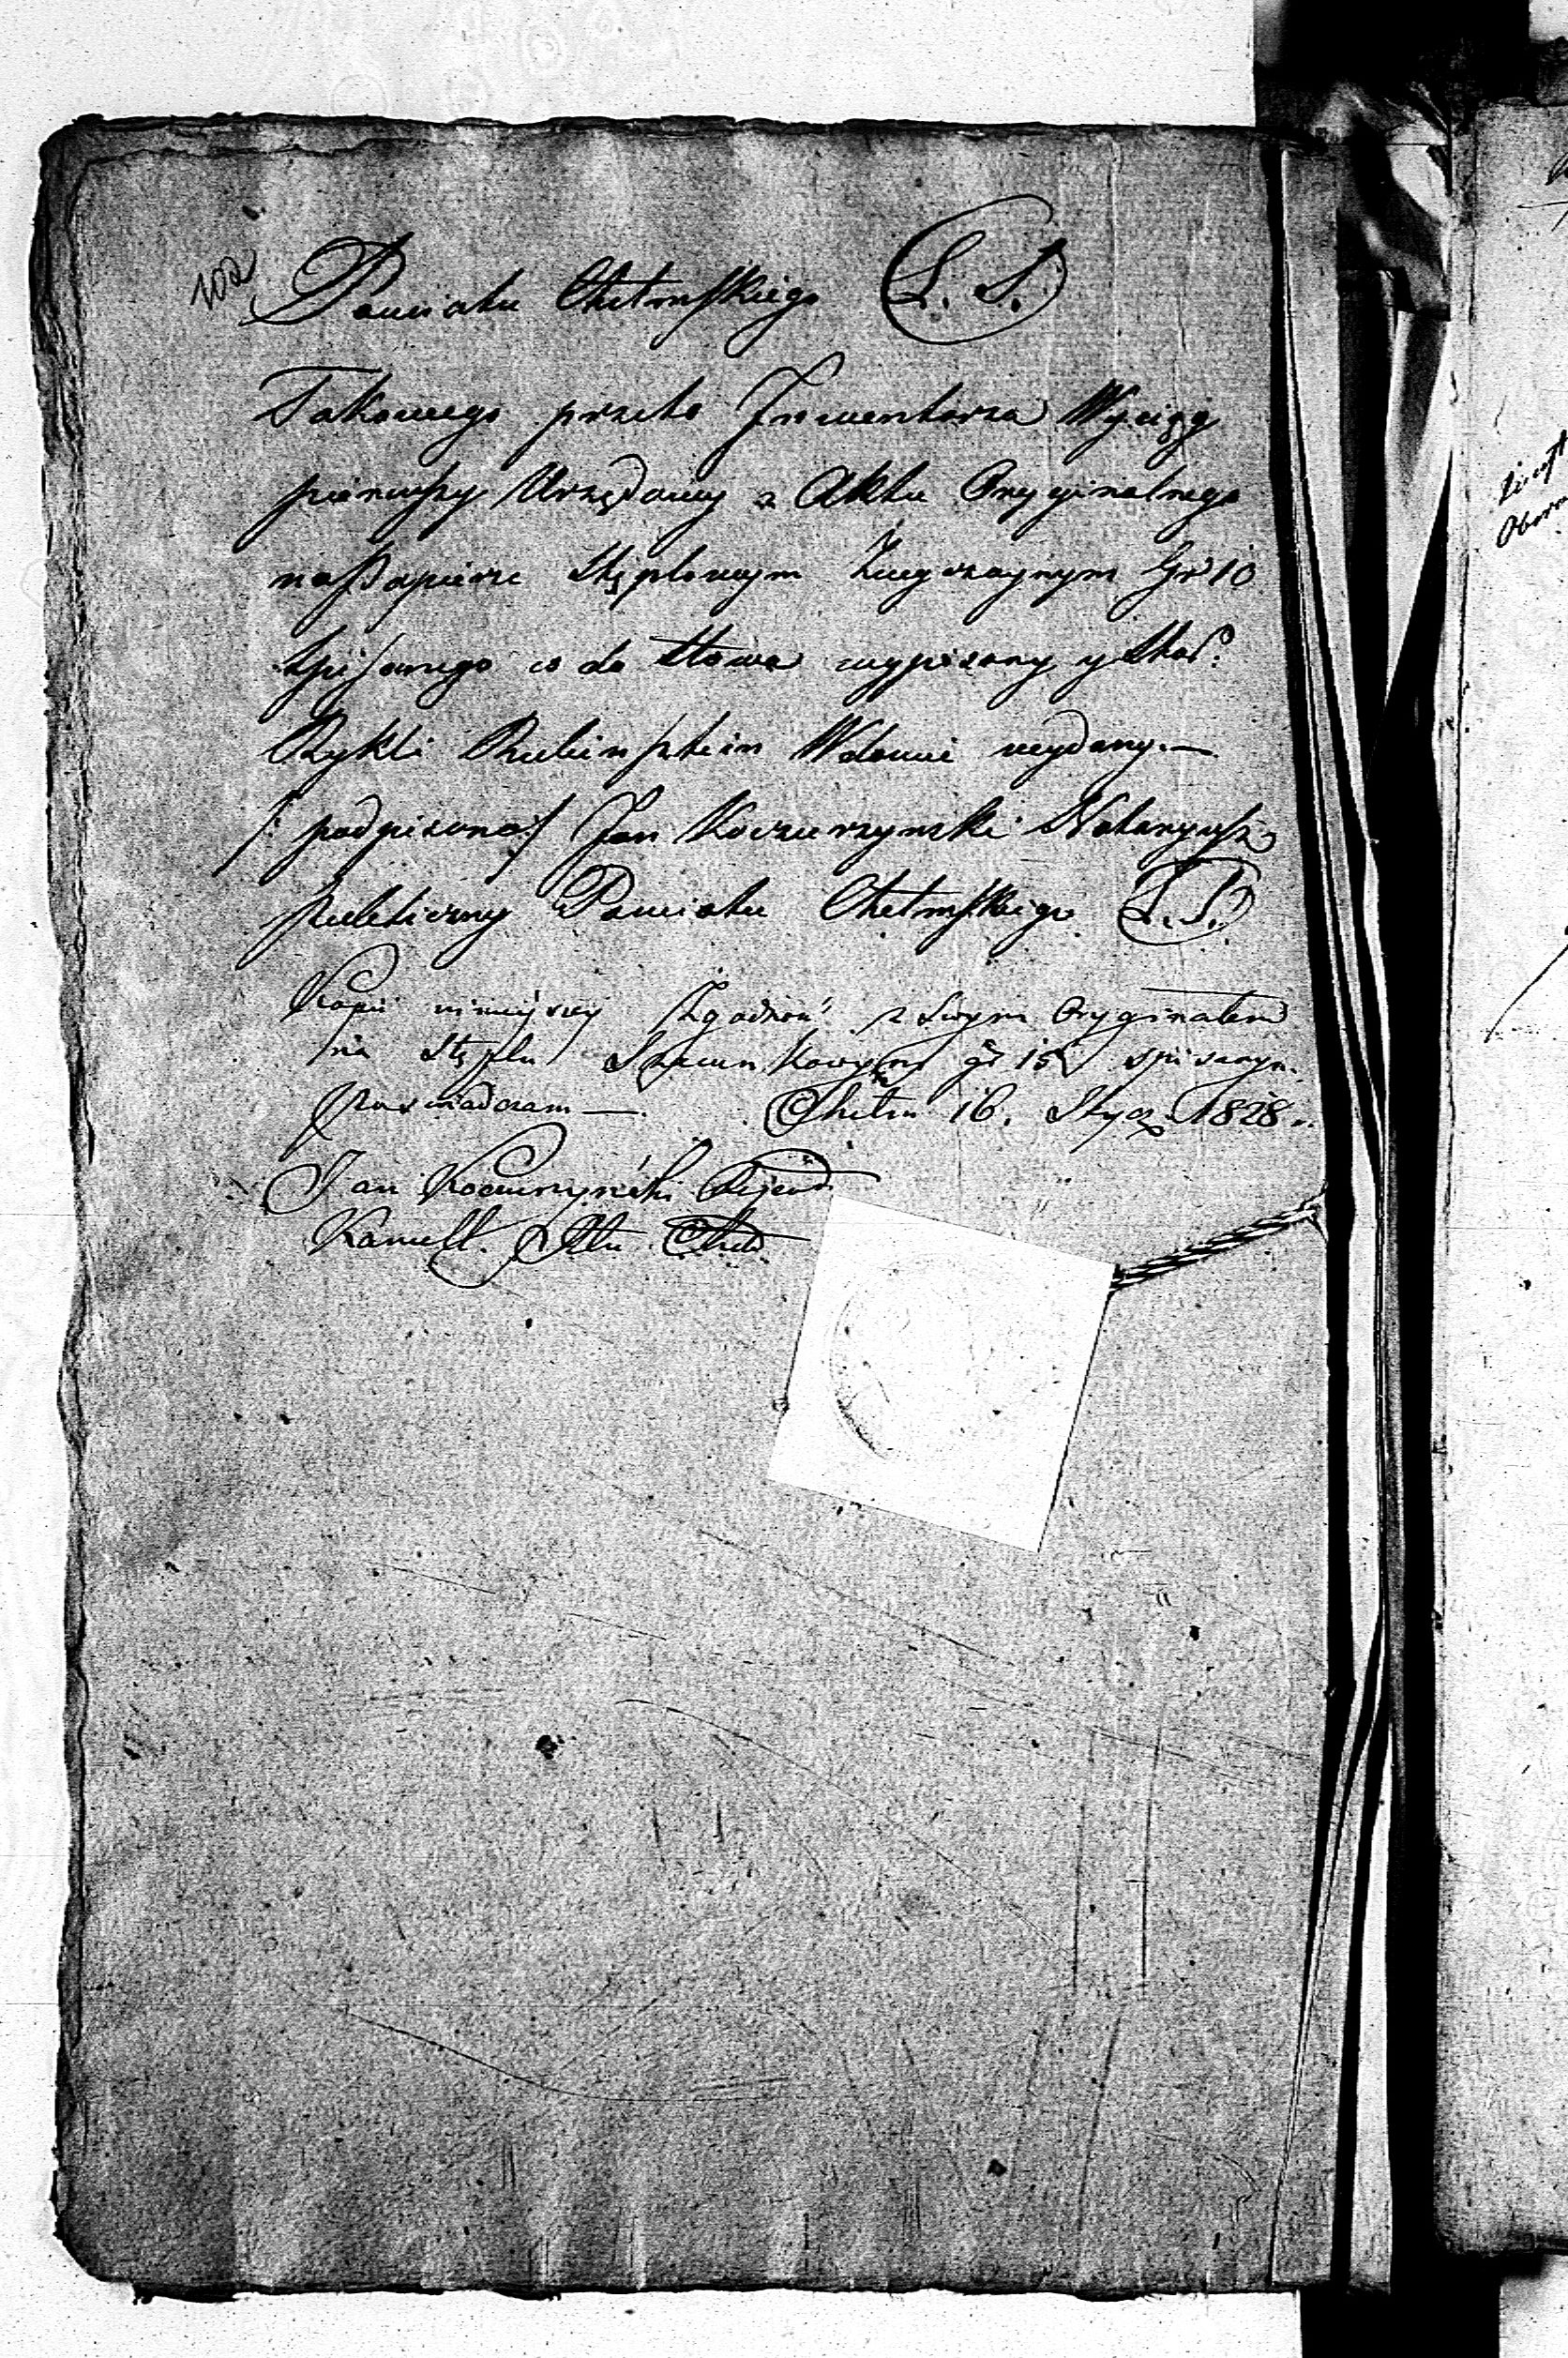 102
Powiatu Chełmskiego L. S.
Takowego przeto Inwentarza Wyciąg
pierwszy Urzędowy z Aktu Oryginalnego
na Papierze Stęplowym Zwyczaynym Gr 10
spisanego co do słowa wypisany y
Rykli Rubinsztein Wdowie wydany. —
/: podpisano :/ Jan Koczurzynski Notaryusz
publiczny Powiatu Chełmskiego L. S.
Kopii ninieyszey Zgodność z Swym Oryginałem
na Stęplu Szacunkowym gr 15 spisanym
Poswiadczam —. Chełm 16. Stycz. 1828.
Jan Koczurzyński Rejent
Kancell. Ptu Chełm